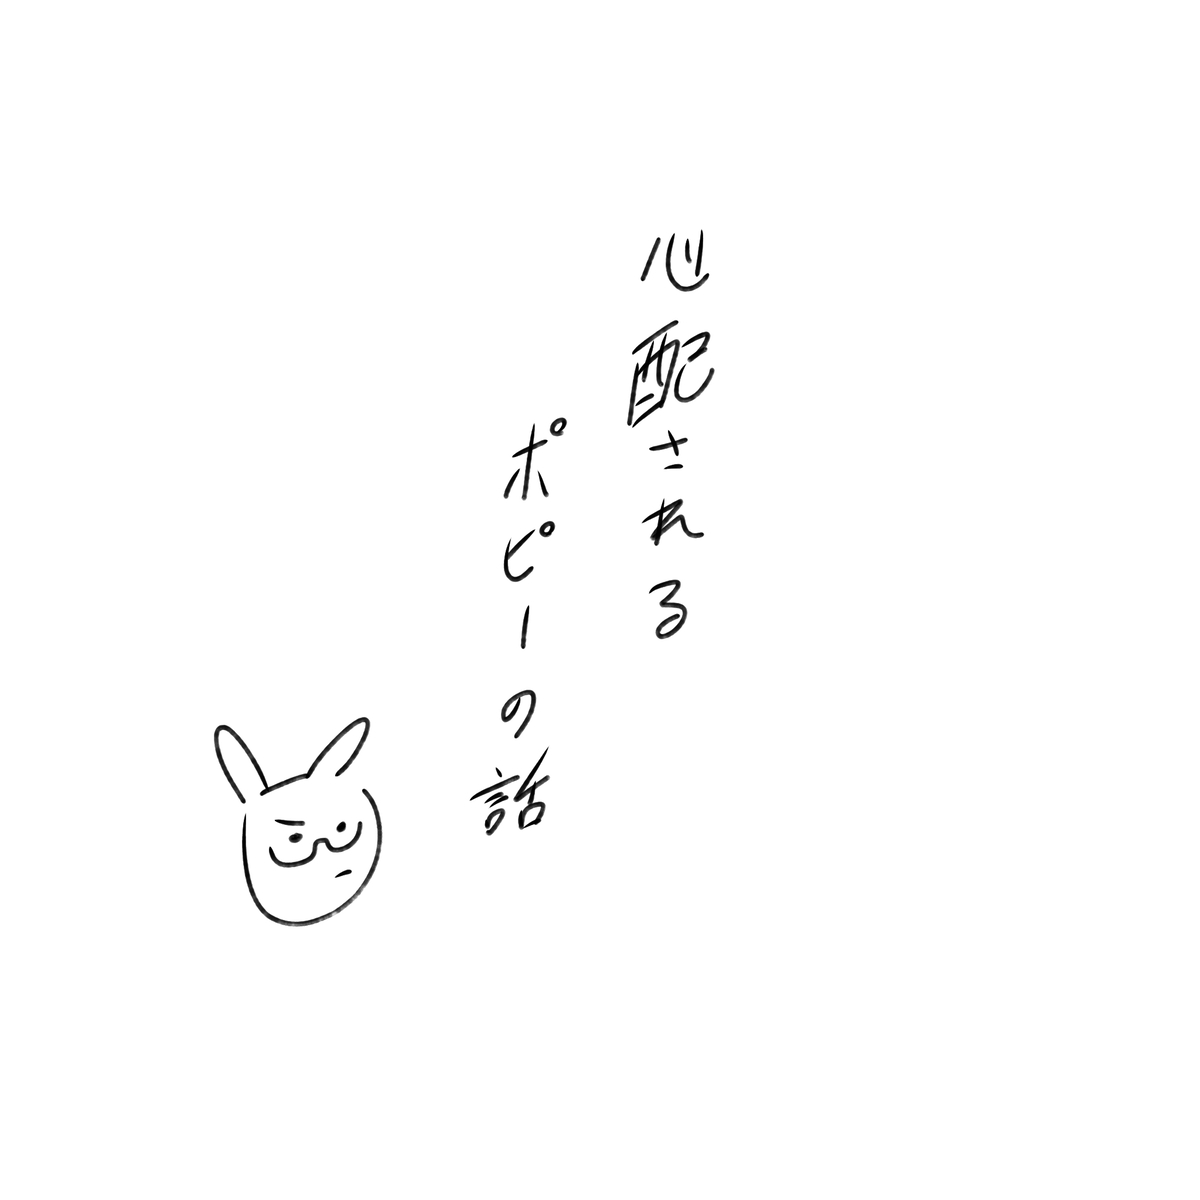 心配される
ポピーの話